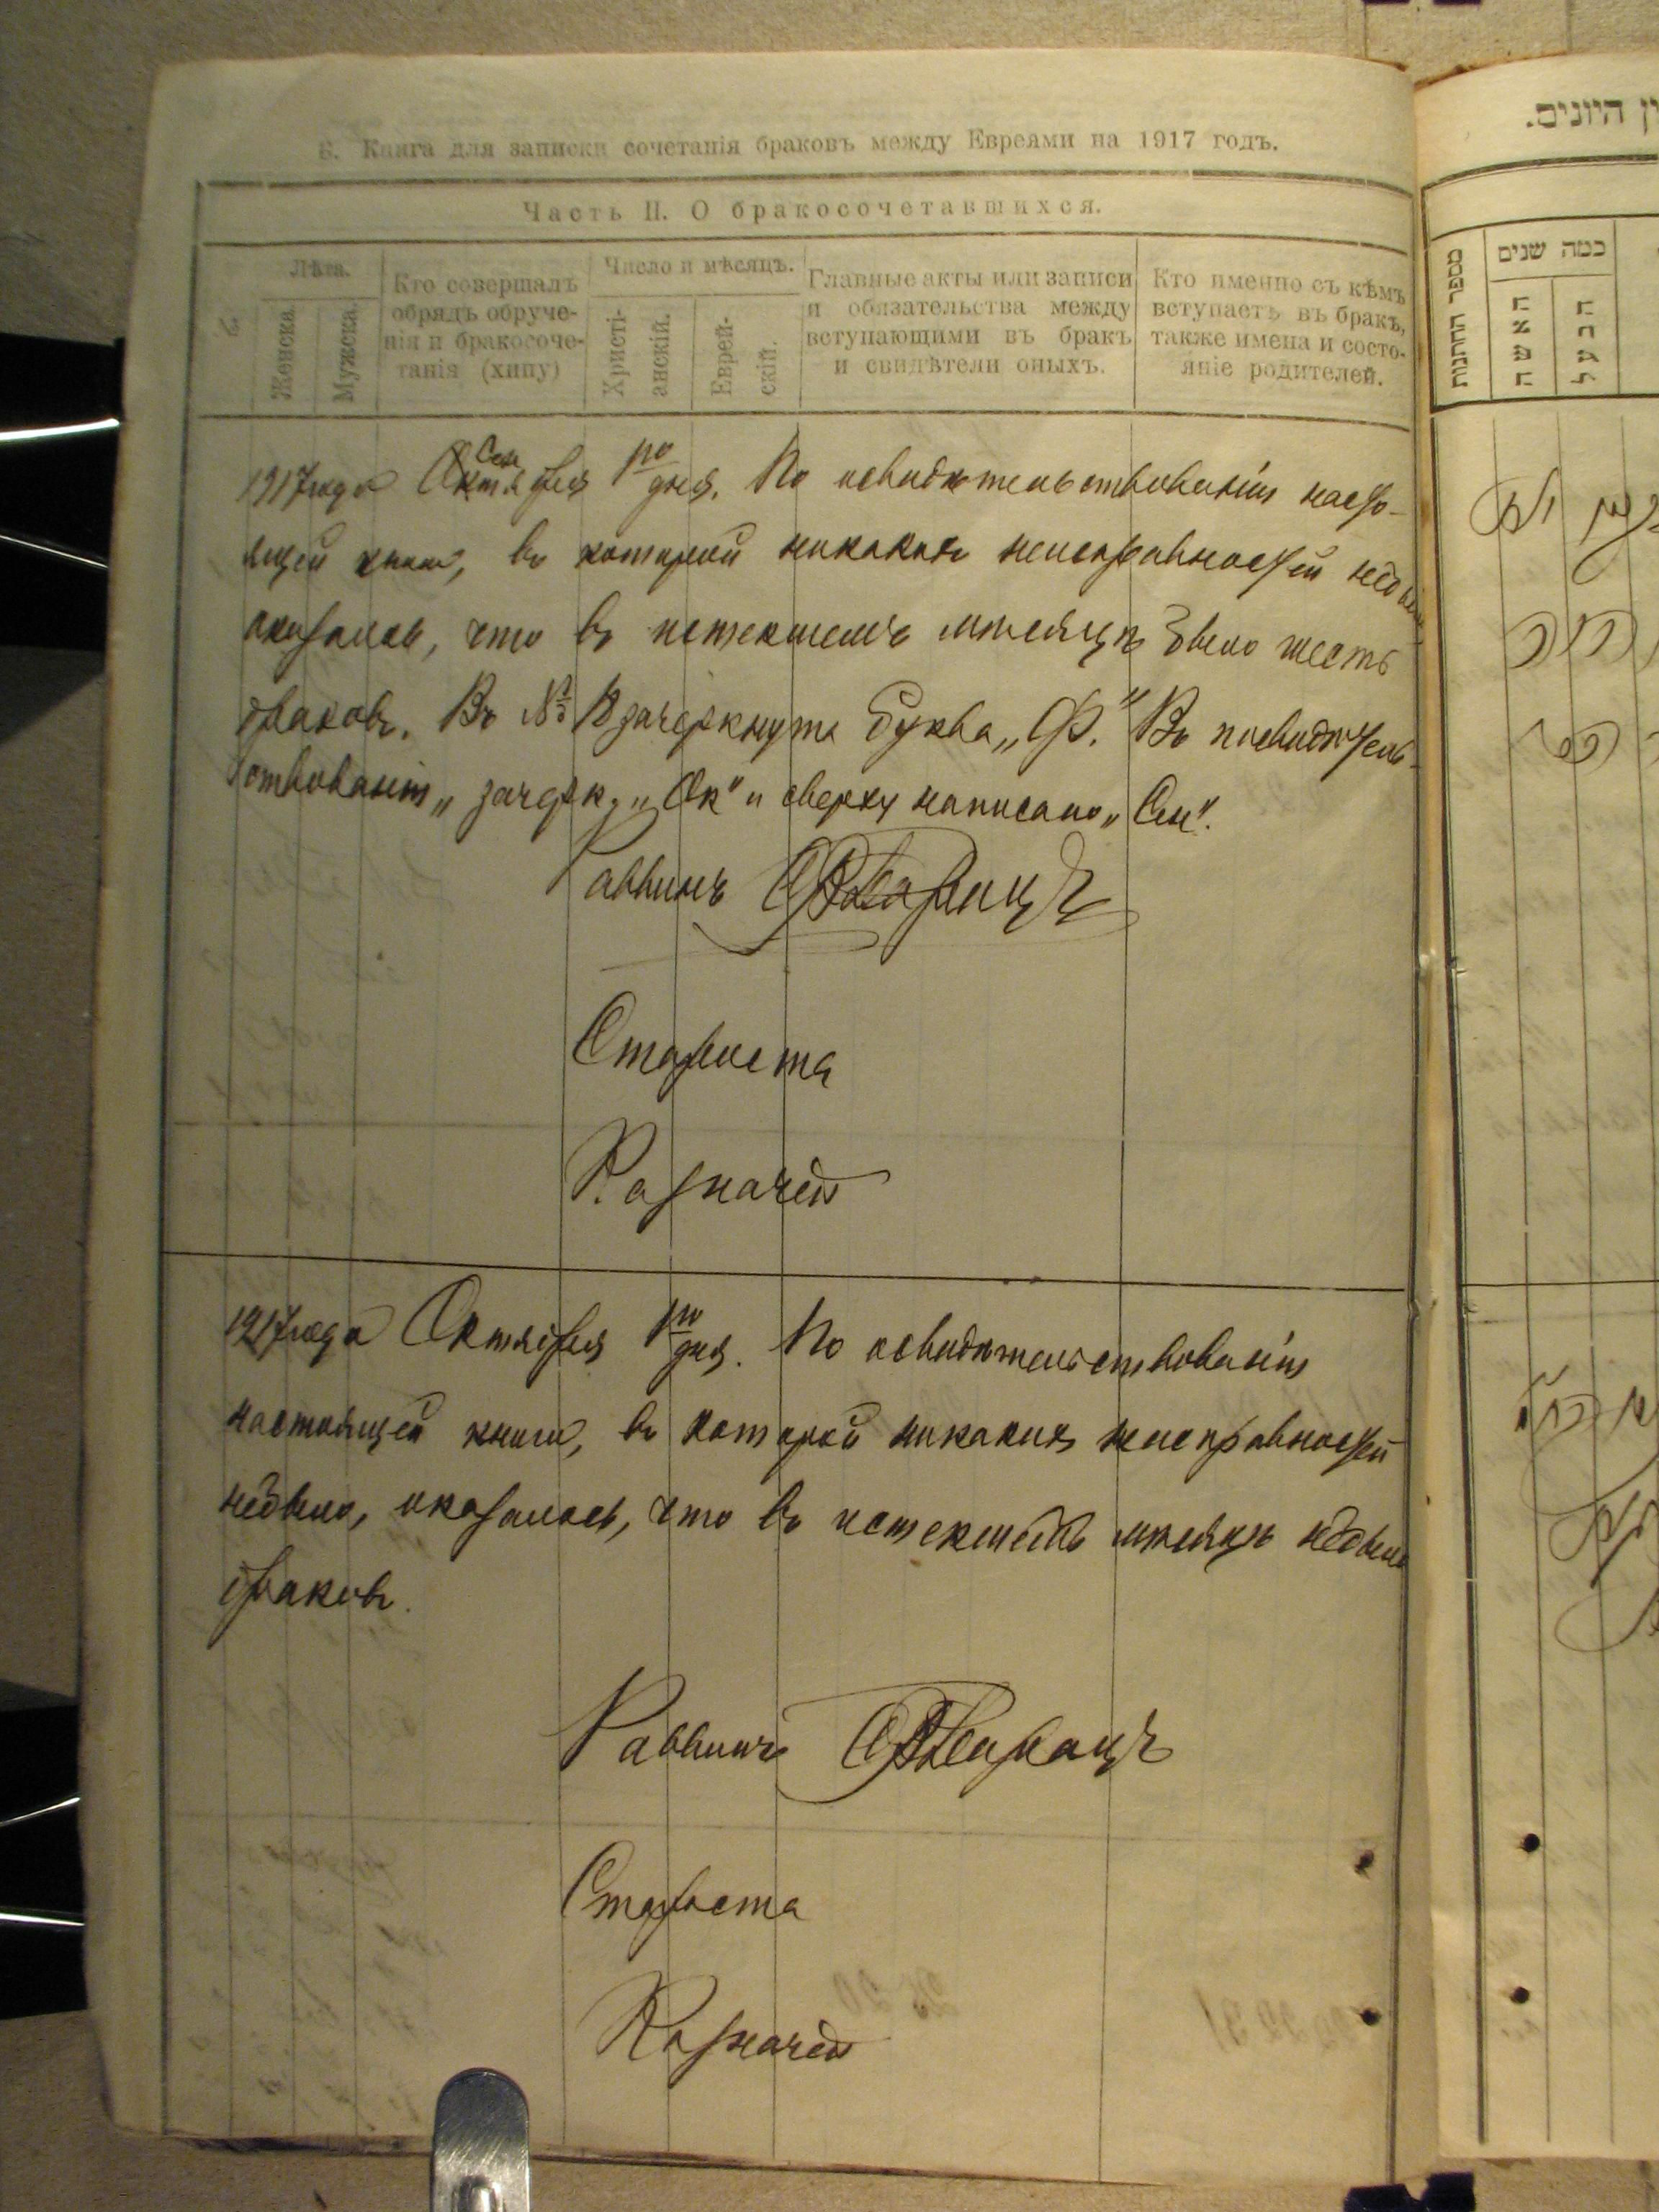 6. Книга для записки сочетанія браковъ между Евреями на 1917 годъ.
Часть II. О бракосочетавшихся.
№.
Лѣта.
Женска.
Мужска.
Кто совершалъ
обрядъ обруче-
нія и бракосоче-
танія (хипу)
Число и мѣсяцъ.
Христі-
анскій.
Еврей-
скій.
Главные акты или записи
и обязательства между
вступающими въ бракъ
и свидѣтели оныхъ.
Кто именно съ кѣмъ
вступаетъ въ бракъ,
также имена и состо-
яніе родителей.
Сен
1917 года Октября 1го дня. По освидѣтельствованіи насто-
ящей книги, въ которой никакихъ неисправностей не было
оказалось, что въ истекшемъ мѣсяцѣ было шесть
браковъ. Въ № 18 зачеркнута буква „Ф." Въ посвидѣтель-
ствованіи „ зачерк, „Ок" и сверху написано „Сен".
Раввинъ
Староста
Казначей
1917 года Октября 1го дня. По освидѣтельствованіи
настоящей книги, въ которой никакихъ неисправностей
не было, оказалось, что въ истекшемъ мѣсяцѣ не было
браковъ.
Раввинъ
Староста
Казначей
ין היונים.
מספר החתנות
כמה שנים
האשה
הבעל